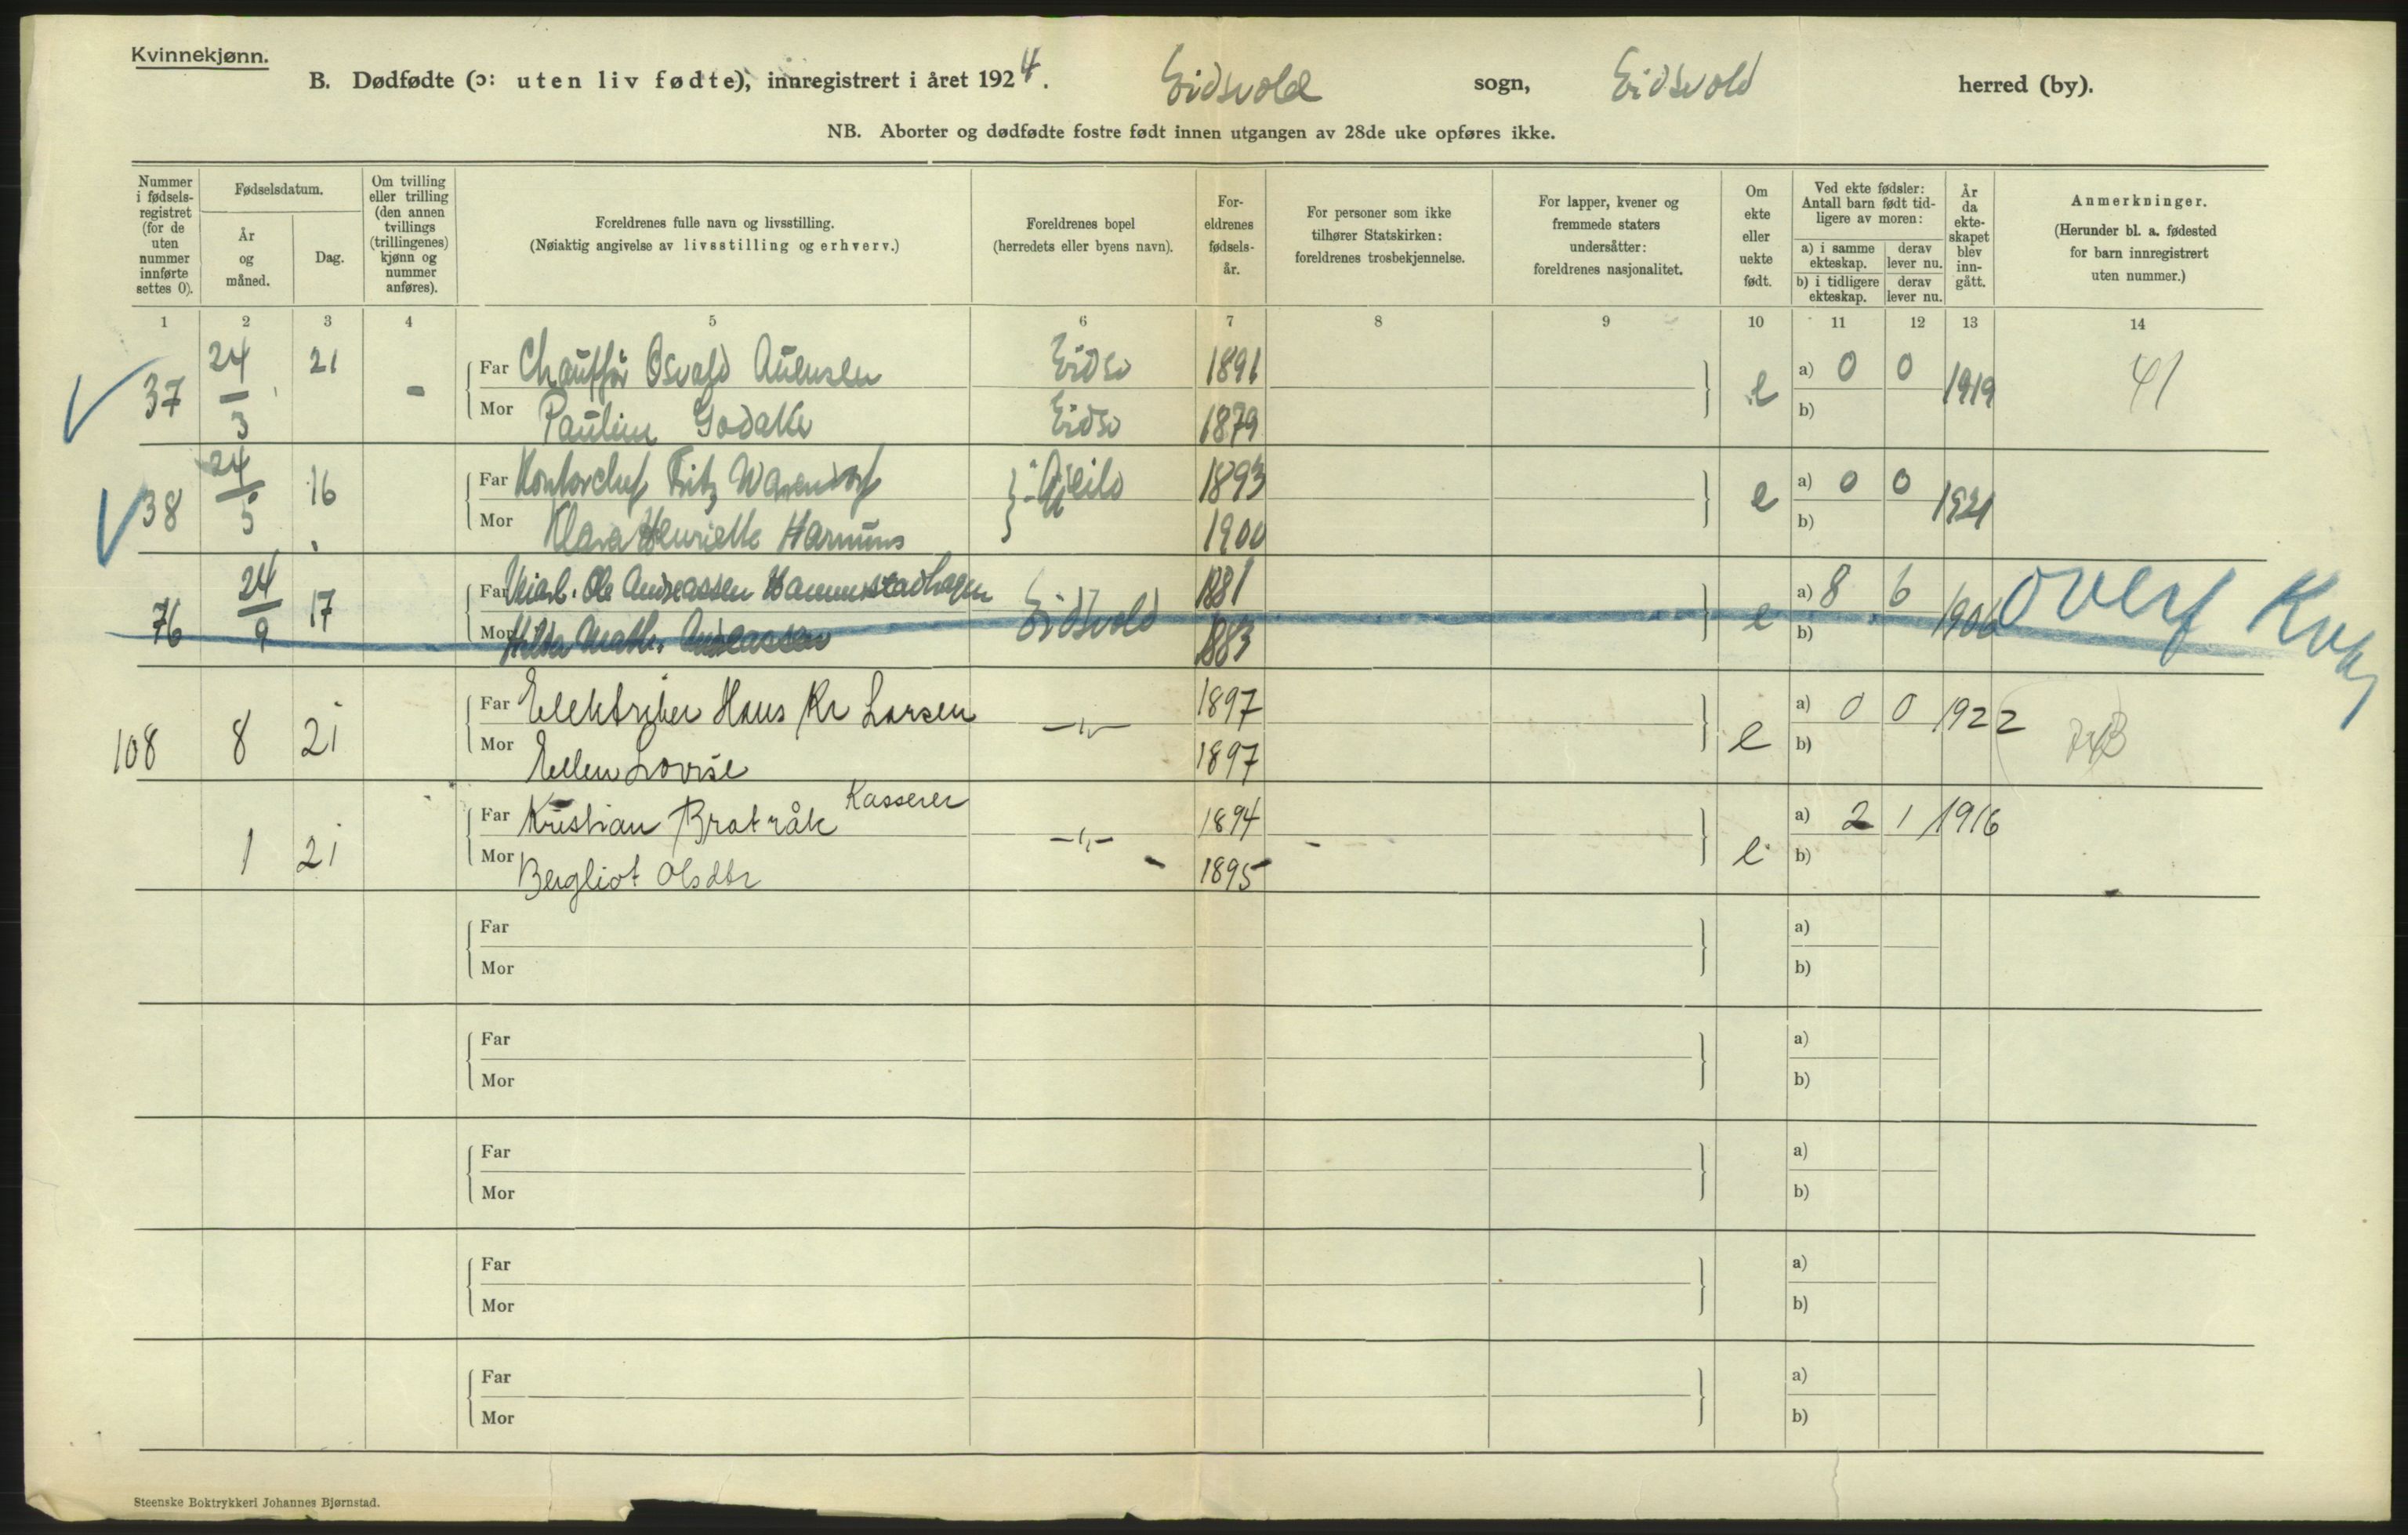 Kvinnekjønn.
B. Dødfødte (ɔ: uten liv fødte), innregistrert i året 1924. Eidsvold sogn, Eidsvold herred (by).
NB. Aborter og dødfødte fostre født innen utgangen av 28de uke opføres ikke.
Nummer i fødselsregistret (for de uten nummer innførte settes 0).
Fødselsdatum.
År og måned.
Dag.
Om tvilling eller trilling (den annen tvillings (trillingenes) kjønn og nummer anføres).
Foreldrenes fulle navn og livsstilling.
(Nøiaktig angivelse av livsstilling og erhverv.)
Foreldrenes bopel
(herredets eller byens navn).
Foreldrenes fødselsår.
For personer som ikke tilhører Statskirken: foreldrenes trosbekjennelse.
For lapper, kvener og fremmede staters undersåtter: foreldrenes nasjonalitet.
Om ekte eller uekte født.
Ved ekte fødsler: Antall barn født tidligere av moren:
a) i samme ekteskap. derav lever nu.
b) i tidligere ekteskap. derav lever nu.
År da ekteskapet blev inngått.
Anmerkninger.
(Herunder bl. a. fødested for barn innregistrert uten nummer.)
1 2 3 4 5 6 7 8 9 10 11 12 13 14
37 24/3 21 - Far Chauffør Osvald Eidsv 1891 e a) 0 0 1919 41
Mor Eidsv 1879 b)
38 24/5 16 Far Kontorchef Fritz 1893 e a) 0 0 1921
Mor Klara Henriette 1900 b)
76 24/9 17 Far Ole Andreassen Eidsvold 1881 e a) 8 6 1906 overf
Mor Hilda 1883 b)
108 8 21 Far Elektriker Hans Kr Larsen -"- 1897 e a) 0 0 1922
Mor Ellen Lovise 1897 b)
1 21 Far Kristian Bratråk Kasserer -"- 1894 e a) 2 1 1916
Mor Bergliot Olsdtr 1895 b)
Far a)
Mor b)
Far a)
Mor b)
Far a)
Mor b)
Far a)
Mor b)
Far a)
Mor b)
Steenske Boktrykkeri Johannes Bjørnstad.